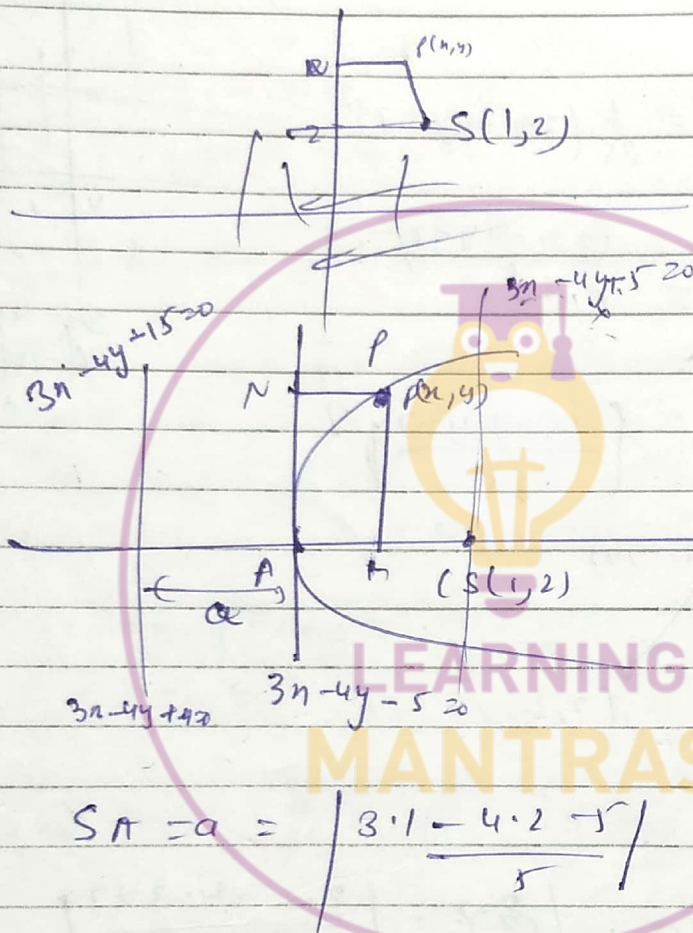 P(x,y)
S(1,2)
3x - 4y + 5 = 0
3x - 4y - 15 = 0
P
N
P(x,y)
A
(S(1,2)
a
3x - 4y - 5 = 0
LEARNING
MANTRAS
SA = a = | 3·1 - 4·2 - 5 |
5